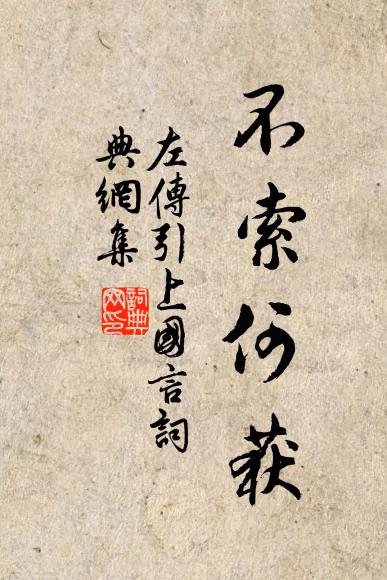 不索何获
左傳引上國言詞
典網集
詞典
网印